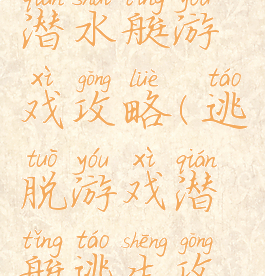 qián shuǐ tǐng yóu
潜水艇游
xì gōng lüè táo
戏攻略(逃
tuō yóu xì qián
脱游戏潜
tǐng táo shēng gōng
艇逃生攻